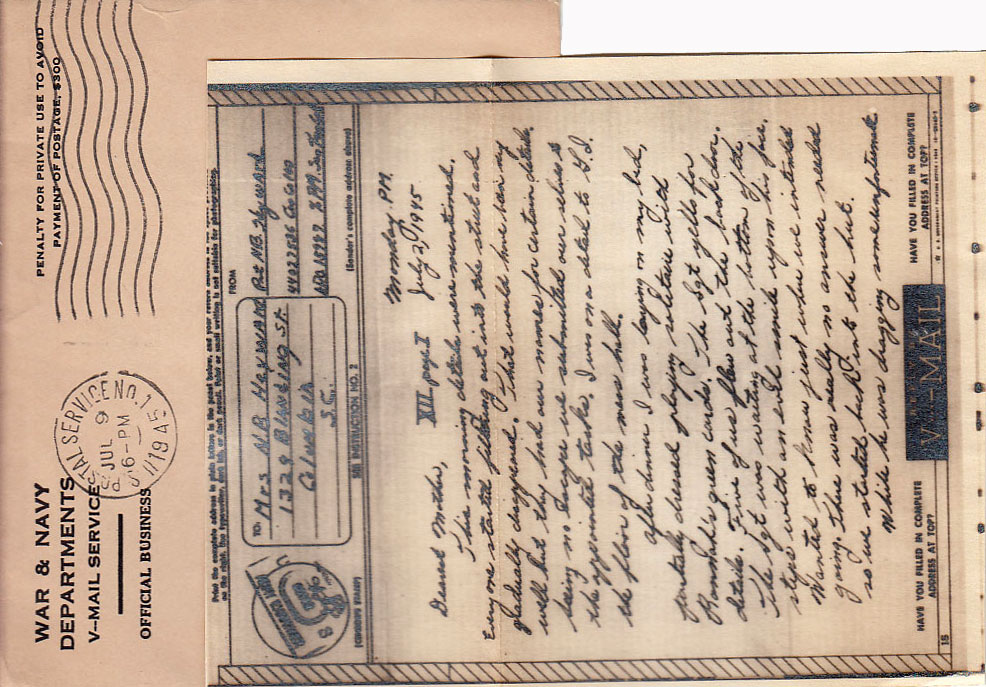 WAR & NAVY
DEPARTMENTS
V-MAIL SERVICE
OFFICIAL BUSINESS
PENALTY FOR PRIVATE USE TO AVOID
PAYMENT OF POSTAGE, $300
POSTAL SERVICE NO. 1
JUL 9
6-PM
1945
Print the complete address in plain letters in the panel below, and your return address in the space provided
on the right. Use typewriter, dark ink, or dark pencil. Faint or small writing is not suitable for photographing.
TO:
Mrs N.B. Heyward
1328 Blanding St.
Columbia
S.C.
FROM
Pvt N.B. Heyward
APO
(CENSOR'S STAMP)
SEE INSTRUCTION NO. 2
(Sender's complete address above)
XII page I
Monday P.M.
July 2, 1945
Dearest Mother,
This morning details were mentioned.
Everyone started filing out into the street and
gradually disappeared. I that would have been my
well but they had our names for certain details.
being no escape we submitted our selves to
the appointed tasks. I was on a detail to G.I.
the floor of the mess hall.
after dinner I was laying on my bed,
partially dressed playing soliture with
Rommel's green cards. The Sgt yells for
details. Five of us flew out the back door.
The Sgt was waiting at the bottom of the
steps with an evil smile upon his face.
Wanted to know just where we intended
going. There was really no answer needed
so we started back into the hut.
While he was dragging some unfortunate
HAVE YOU FILLED IN COMPLETE
ADDRESS AT TOP?
V-MAIL
HAVE YOU FILLED IN COMPLETE
ADDRESS AT TOP?